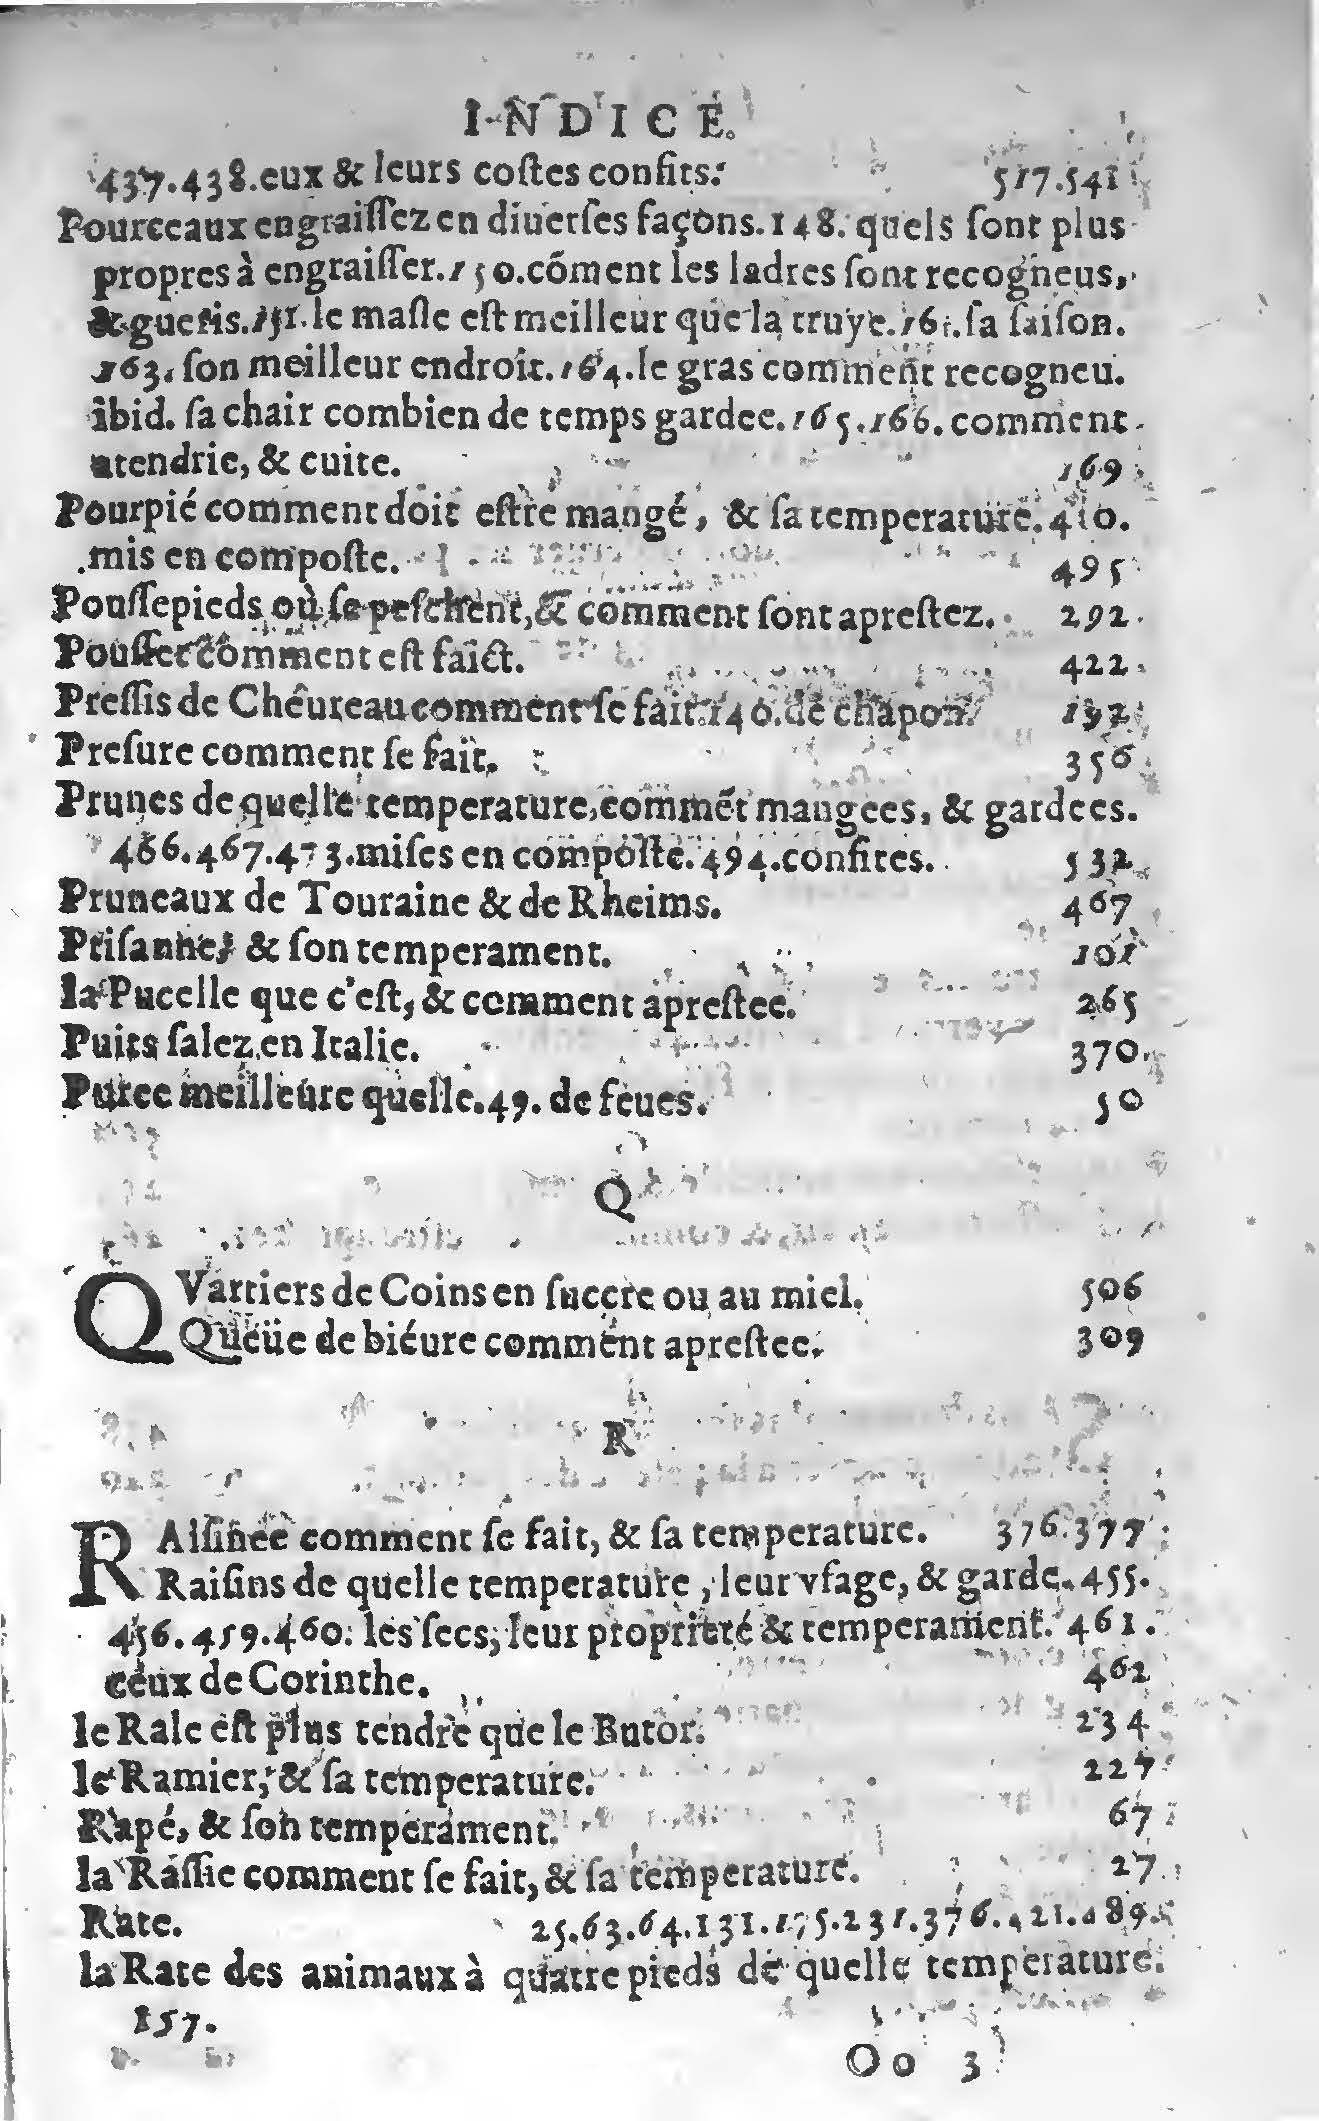 INDICE.
437.438.eux & leurs costes confits. 517.541
Pourceaux engraissez en diuerses façons.148. quels sont plus
propres à engraisser.150.cōment les ladres sont recogneus,
& gueris.151.le masle est meilleur que la truye.161.sa saison.
163. son meilleur endroit.164.le gras comment recogneu.
ibid. sa chair combien de temps gardee.165.166. comment
atendrie, & cuite. 169
Pourpié comment doit estre mangé, & sa temperature.410.
mis en composte. 495
Poussepieds où se peschent, & comment sont aprestez. 292.
Pousset comment est faict. 422.
Pressis de Cheureau comment se fait.140.de chapon. 192
Presure comment se fait. 356
Prunes de quelle temperature, commēt mangees, & gardees.
466.467.473.mises en composte.494.confites. 532
Pruneaux de Touraine & de Rheims. 467
Ptisanne, & son temperament. 101
la Pucelle que c'est, & comment aprestee. 265
Puits salez en Italie. 370
Puree meilleure quelle.49. de feues. 50
Q
QVartiers de Coins en succre ou au miel. 506
Queüe de biéure comment aprestee. 309
R
RAisinee comment se fait, & sa temperature. 376.377
Raisins de quelle temperature, leur vsage, & garde.455.
456.459.460. les secs, leur proprieté & temperament. 461.
ceux de Corinthe. 462
le Rale est plus tendre que le Butor. 234
le Ramier, & sa temperature. 227
Rapé, & son temperament. 67
la Rassie comment se fait, & sa temperature. 27
Rate. 25.63.64.131.175.231.376.421.489.
la Rate des animaux à quatre pieds de quelle temperature.
157.
Oo 3